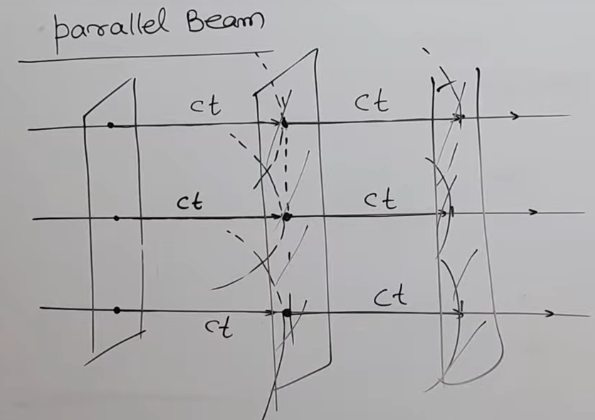 parallel Beam
ct ct
ct ct
ct ct